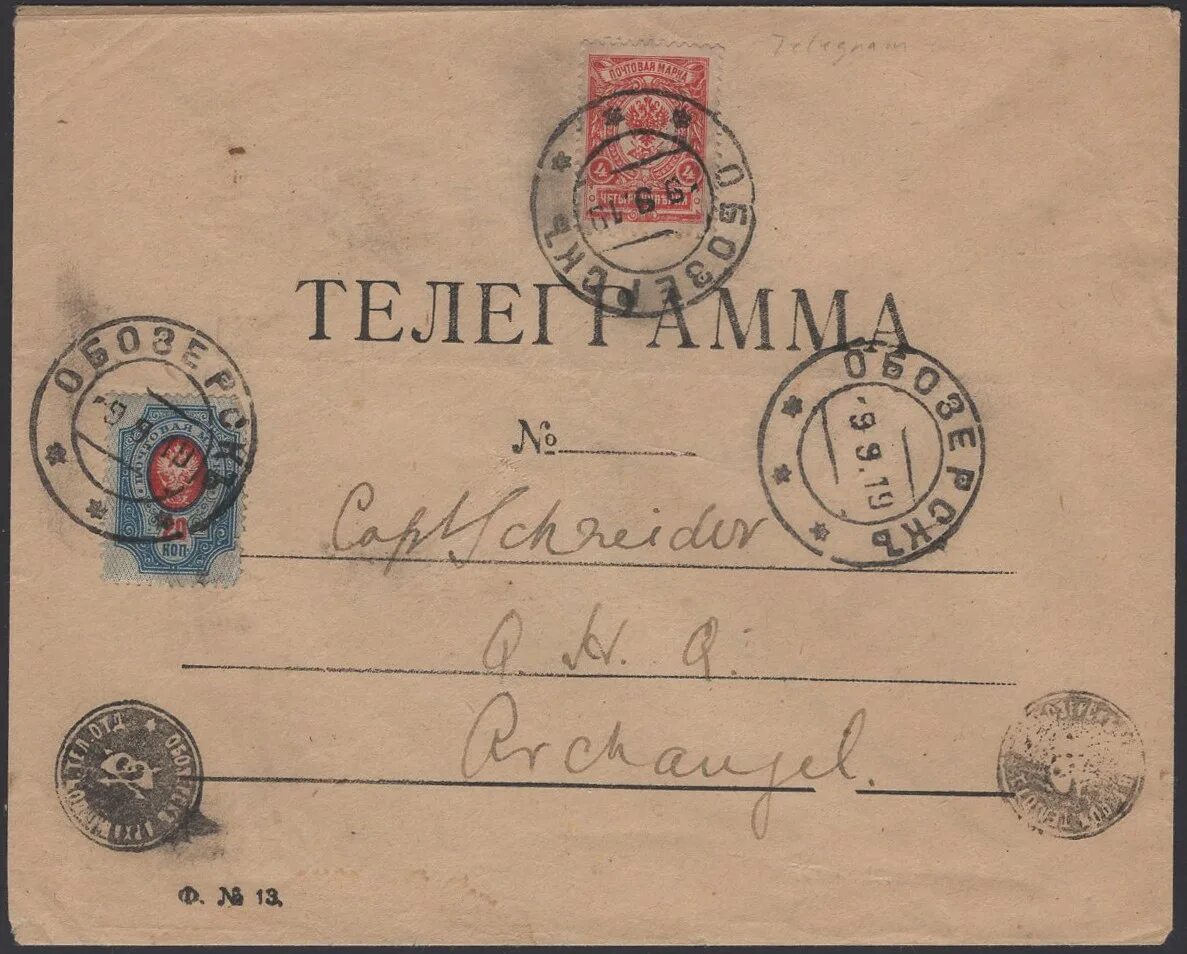 Telegram
ПОЧТОВАЯ МАРКА
4 4
ОБОЗЕРСКЪ
9.9.19
ТЕЛЕГРАММА
ОБОЗЕРСКЪ
ОБОЗЕРСКЪ
9 9.19
ПОЧТОВАЯ
20
КОП.
№
Capt Schreider
Q. H. Q.
Archangel.
ТЕЛ. ОТД
Ф. № 13.